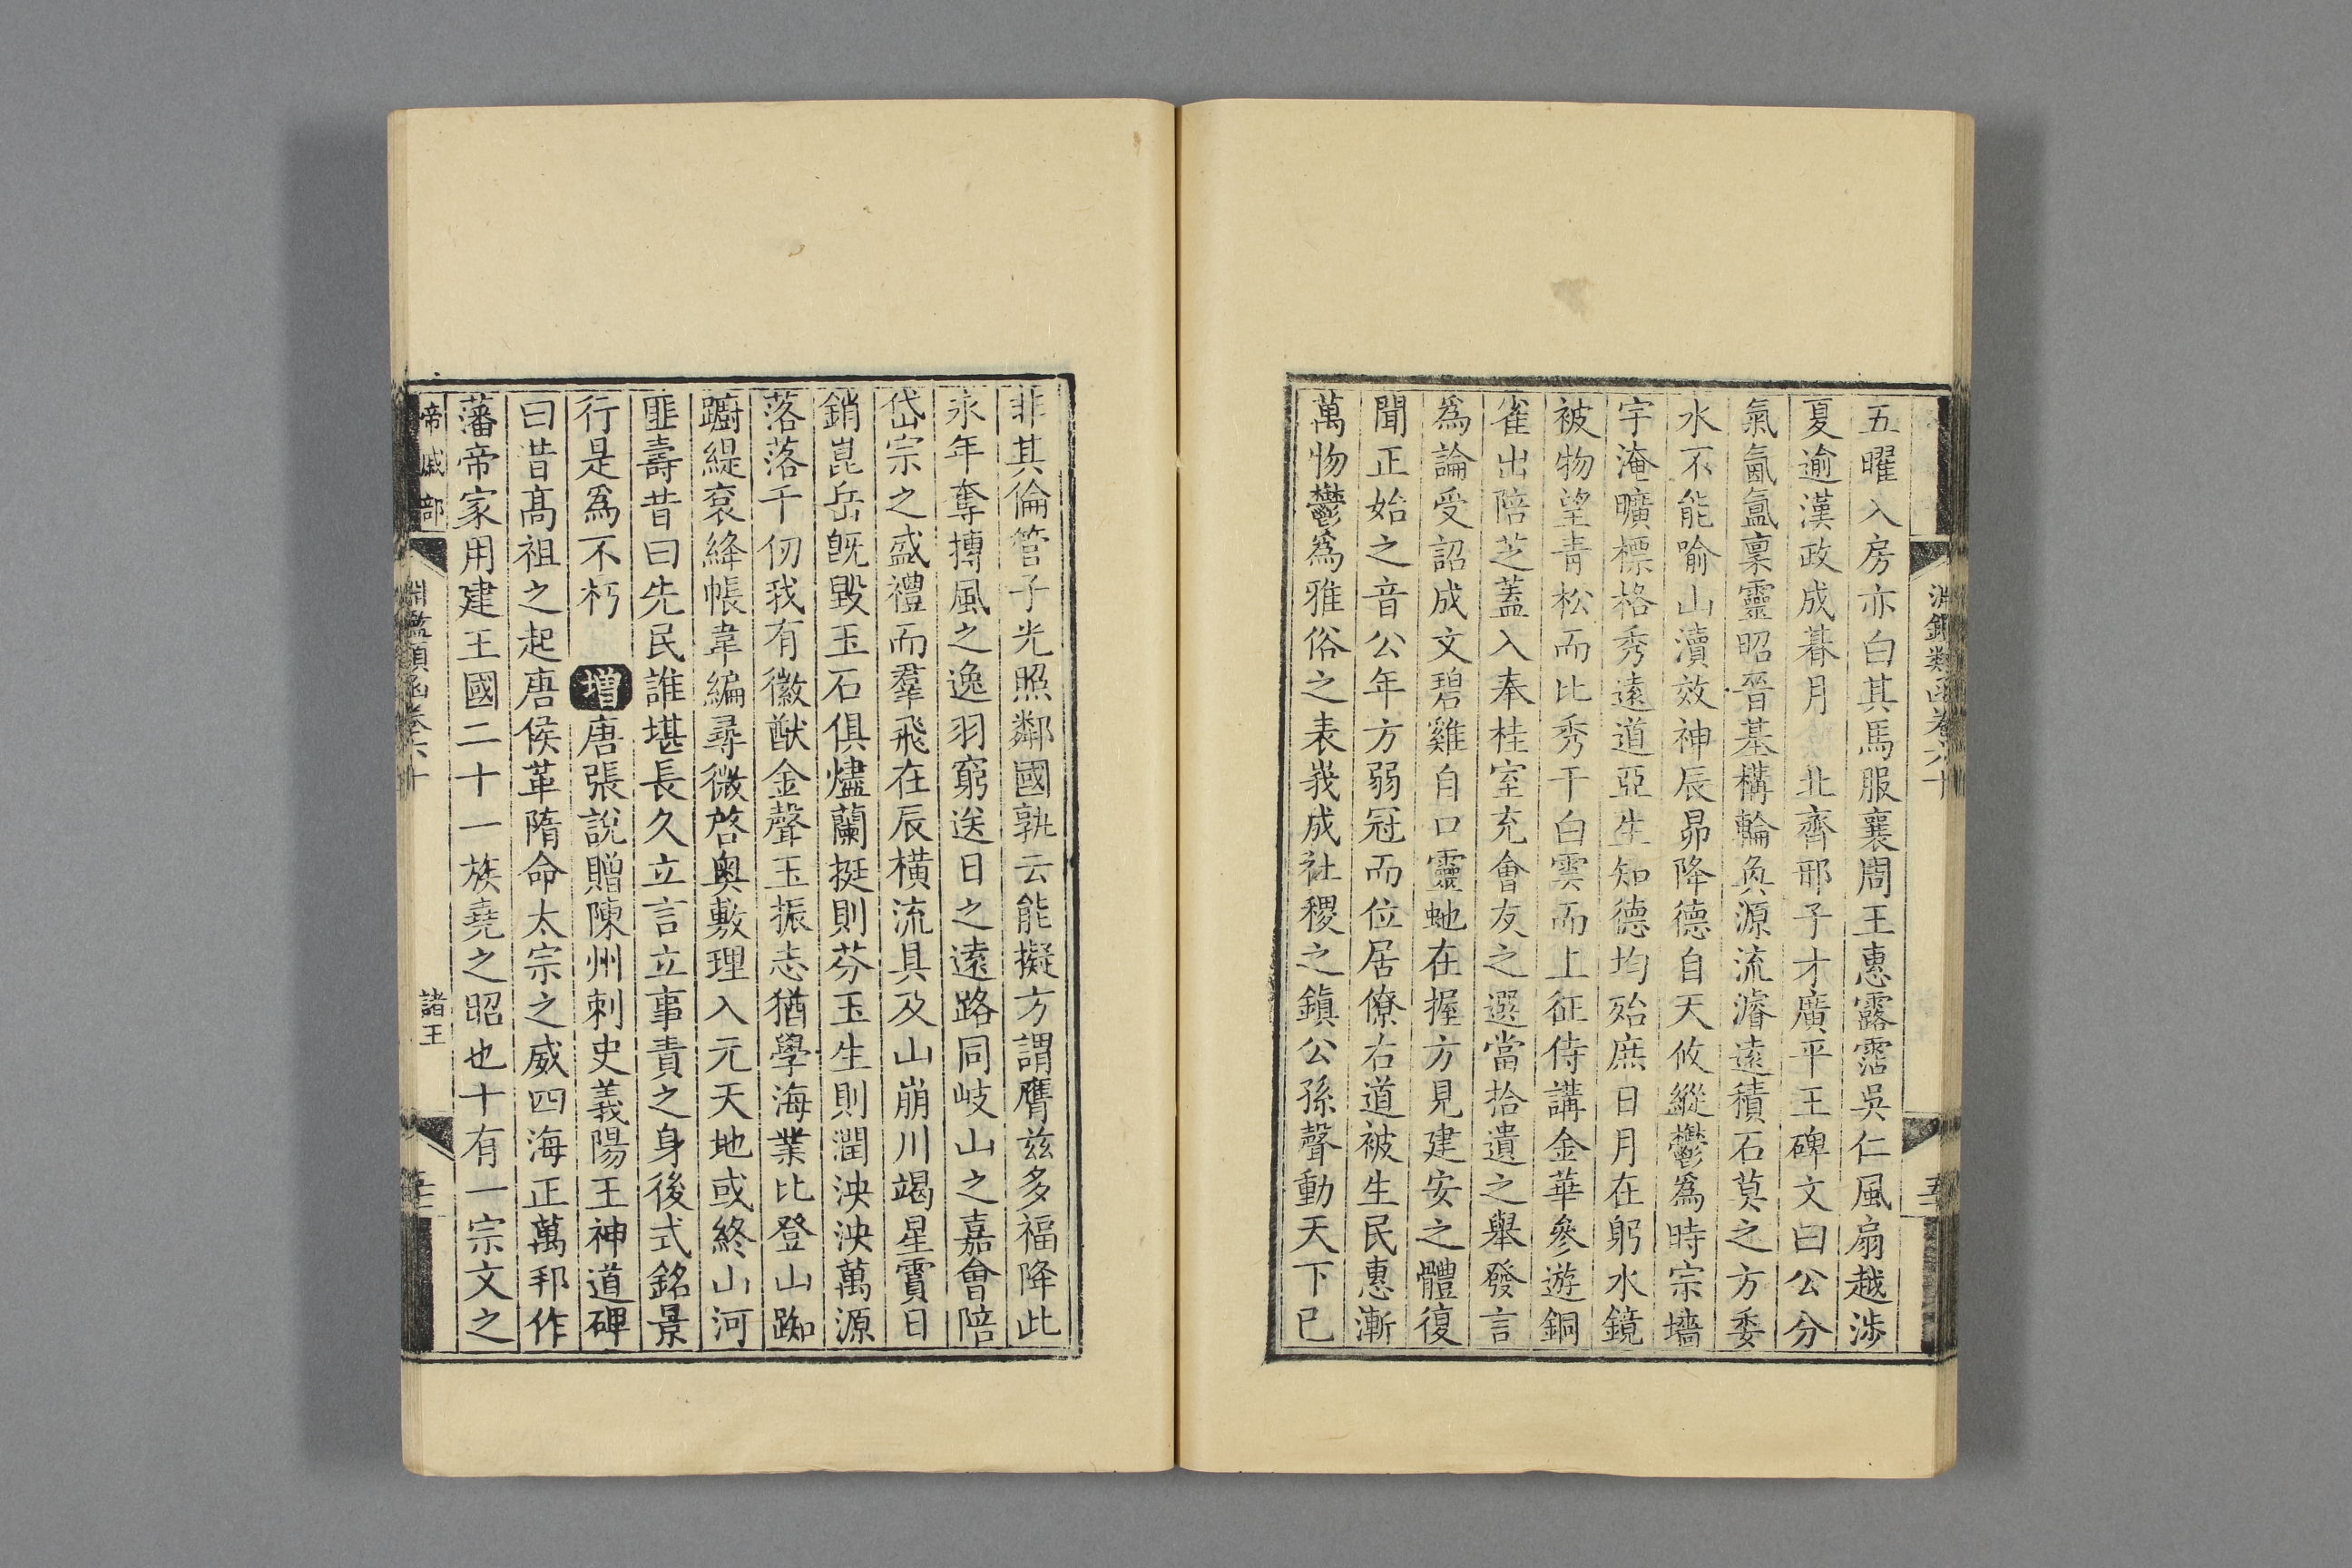 五曜入房亦白其馬服襄周王惠露霑吳仁風扇越涉
夏逾漢政成朞月 北齊邢子才廣平王碑文曰公分
氣氤氳稟靈昭晉基構輪奐源流濬遠積石莫之方委
水不能喻山瀆效神辰昴降德自天攸縱鬱爲時宗墻
宇淹曠標格秀遠道亞生知德均殆庶日月在躬水鏡
被物望青松而比秀干白雲而上征侍講金華參遊銅
雀出陪芝蓋入奉桂室充會友之選當拾遺之舉發言
爲論受詔成文碧雞自口靈虵在握方見建安之體復
聞正始之音公年方弱冠而位居僚右道被生民惠漸
萬物鬱爲雅俗之表峩成社稷之鎮公孫聲動天下已
非其倫管子光照鄰國孰云能擬方謂膺兹多福降此
永年奪摶風之逸羽窮送日之遠路同岐山之嘉會陪
岱宗之盛禮而羣飛在辰橫流具及山崩川竭星霣日
銷崑岳旣毀玉石俱燼蘭挺則芬玉生則潤泱泱萬源
落落千仞我有徽猷金聲玉振志猶學海業比登山踟
躕緹裒絳帳韋編尋微啓奧敷理入元天地或終山河
匪壽昔曰先民誰堪長久立言立事責之身後式銘景
行是爲不朽 增唐張說贈陳州刺史義陽王神道碑
曰昔高祖之起唐侯革隋命太宗之威四海正萬邦作
藩帝家用建王國二十一族堯之昭也十有一宗文之
帝戚部 淵鑑類函卷六十 諸王